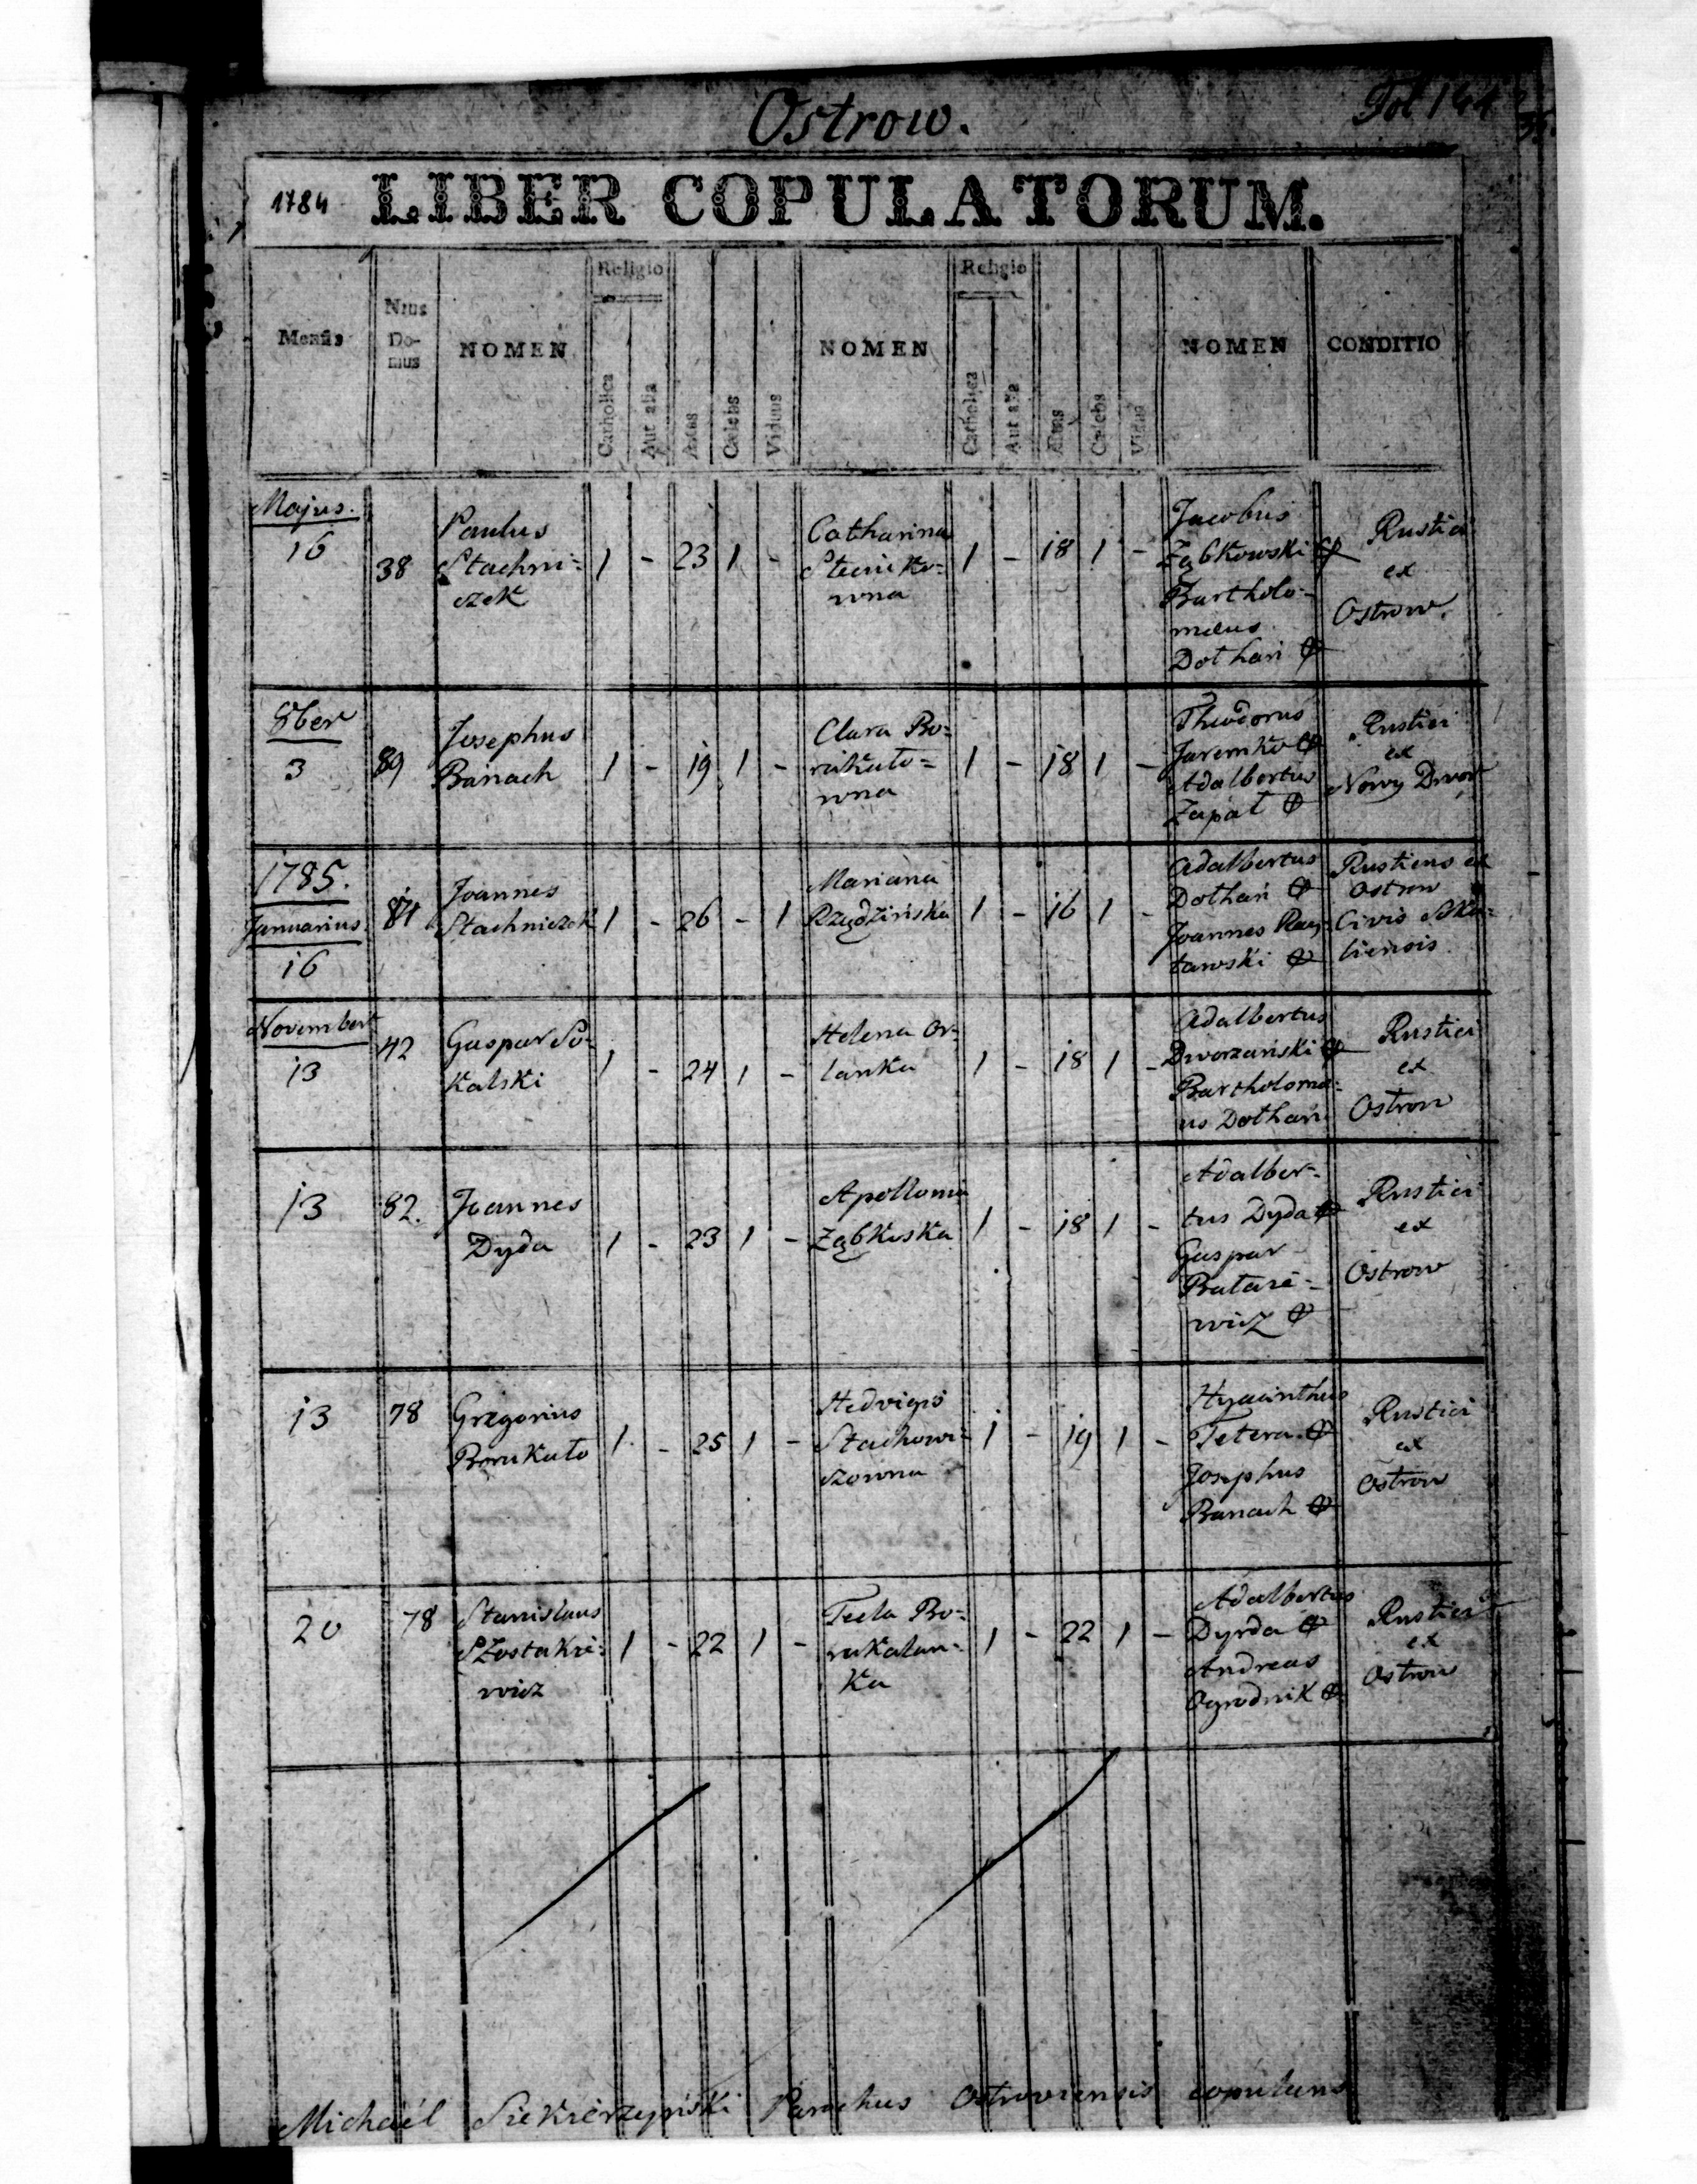 Ostrow.
Fol
1784 LIBER COPULATORUM.
Mensis
Nrus Do-mus
NOMEN
Religio
Catholica
Aut alia
Aetas
Caelebs
Viduus
NOMEN
Religio
Catholica
Aut alia
Aetas
Caelebs
Vidua
NOMEN
CONDITIO
Majus.
16
38
Paulus
Stachni=
czek
1 - 23 1 -
Catharina
wna
1 - 18 1 -
Jacobus
Ząbkowski
Bartholo-
meus
Dothan
Rustici
ex
Ostrow.
8ber
3
89
Josephus
Banach
1 - 19 1 -
Clara Bo=
rukało=
wna
1 - 18 1 -
Theodorus
Jaremko
Adalbertus
Zapał
Rustici
ex
Nowy Dwor
1785.
Januarius.
16
Joannes
Stachniczek
1 - 26 - 1
Mariana
Rządzińska
1 - 16 1 -
Adalbertus
Dothań
Joannes
tawski
Rusticus ex
Ostrow
Civis
liensis
November
13
42
Gaspar So=
kalski
1 - 24 1 -
Helena Or-
lanka
1 - 18 1 -
Adalbertus
Dworzański
Bartholomæ=
us Dothań
Rustici
ex
Ostrow
13
82.
Joannes
Dyda
1 - 23 1 -
Apollonia
1 - 18 1 -
Adalber=
tus Dyda
Gaspar
wicz
Rustici
ex
Ostrow
13
78
Gregorius
Borukało
1. - 25 1 -
Hedvigis
Stachowi=
czowna
1 - 19 1 -
Hyacinthus
Tetera.
Josephus
Banach
Rustici
ex
Ostrow
20
78
Stanislaus
Szostakie=
wicz
1 - 22 1 -
Tecla Bo=
rukalan=
ka
1 - 22 1 -
Adalbertus
Dyrda
Andreas
Ogrodnik
Rustici
ex
Ostrow
Michaël Siekierzyński Parochus Ostroviensis copulans